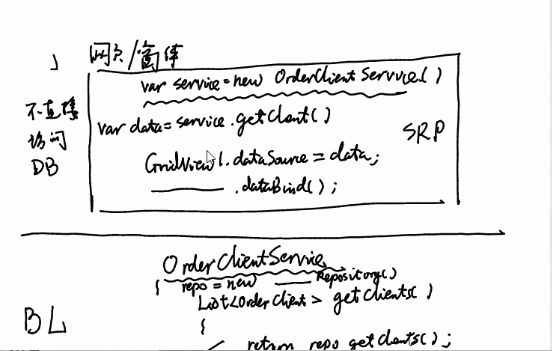 网页/窗体
var service = new OrderClientService()
不直接
访问
DB
var data = service.getClient()
SRP
GridView1.dataSource = data;
.dataBind();
OrderClientService
{ repo = new ___ Repository()
List<OrderClient> getClients()
{
BL
return repo.getClients();